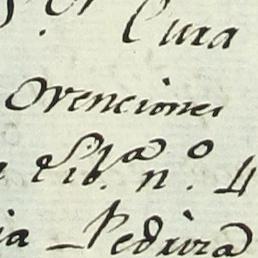 Sr. Cura
Ovenciones
Lib.a n.o 4
ia - Pedura